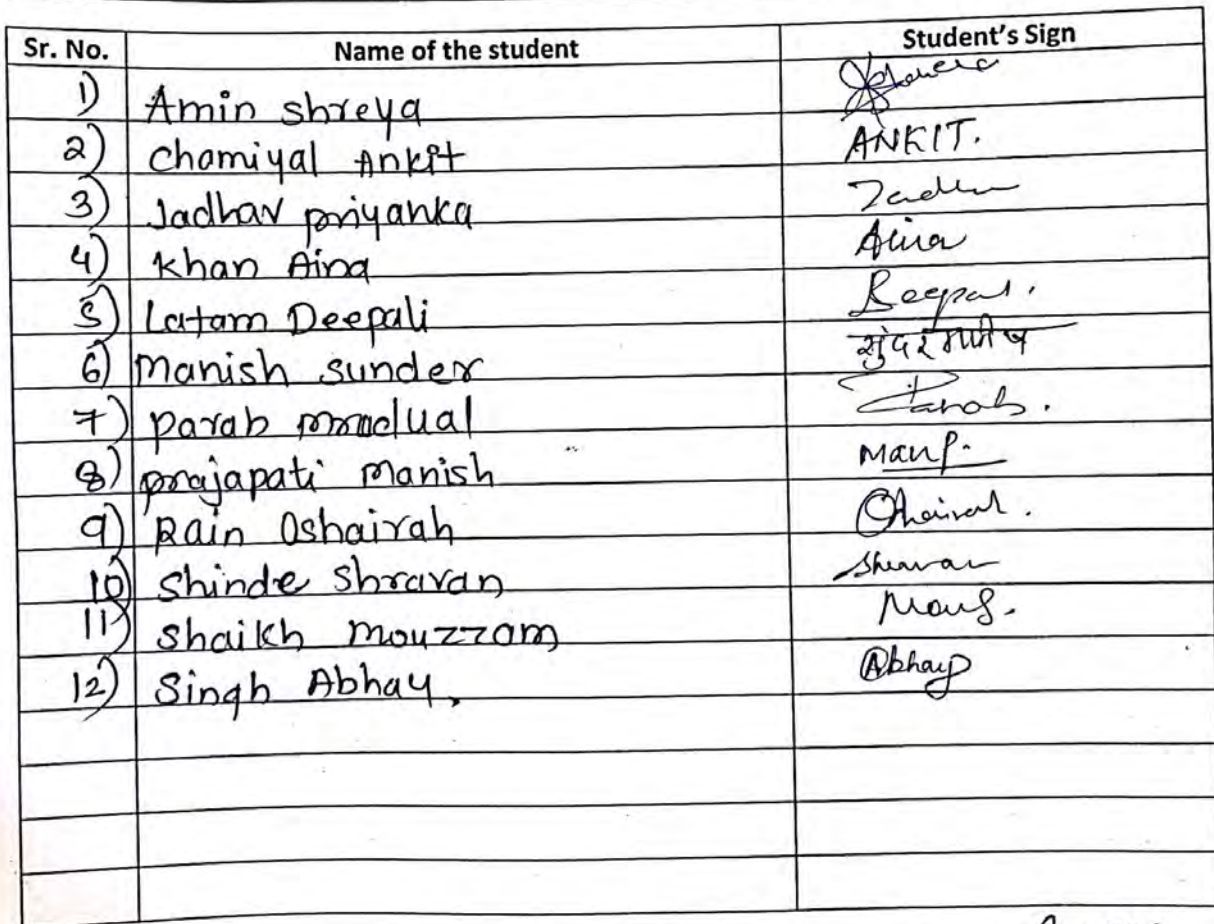 Sr. No. Name of the student Student's Sign
1) Amin shreya
2) Chamiyal Ankit ANKIT.
3) Jadhav priyanka
4) Khan Aina Aina
5) Latam Deepali Deepal.
6) Manish sunder सुंदर मनिष
7) parab mradual Parab.
8) prajapati Manish Manf.
9) Rain Oshairah Ohairah.
10) Shinde Shravan Shravan
11) Shaikh Mouzzam
12) Singh Abhay. Abhay